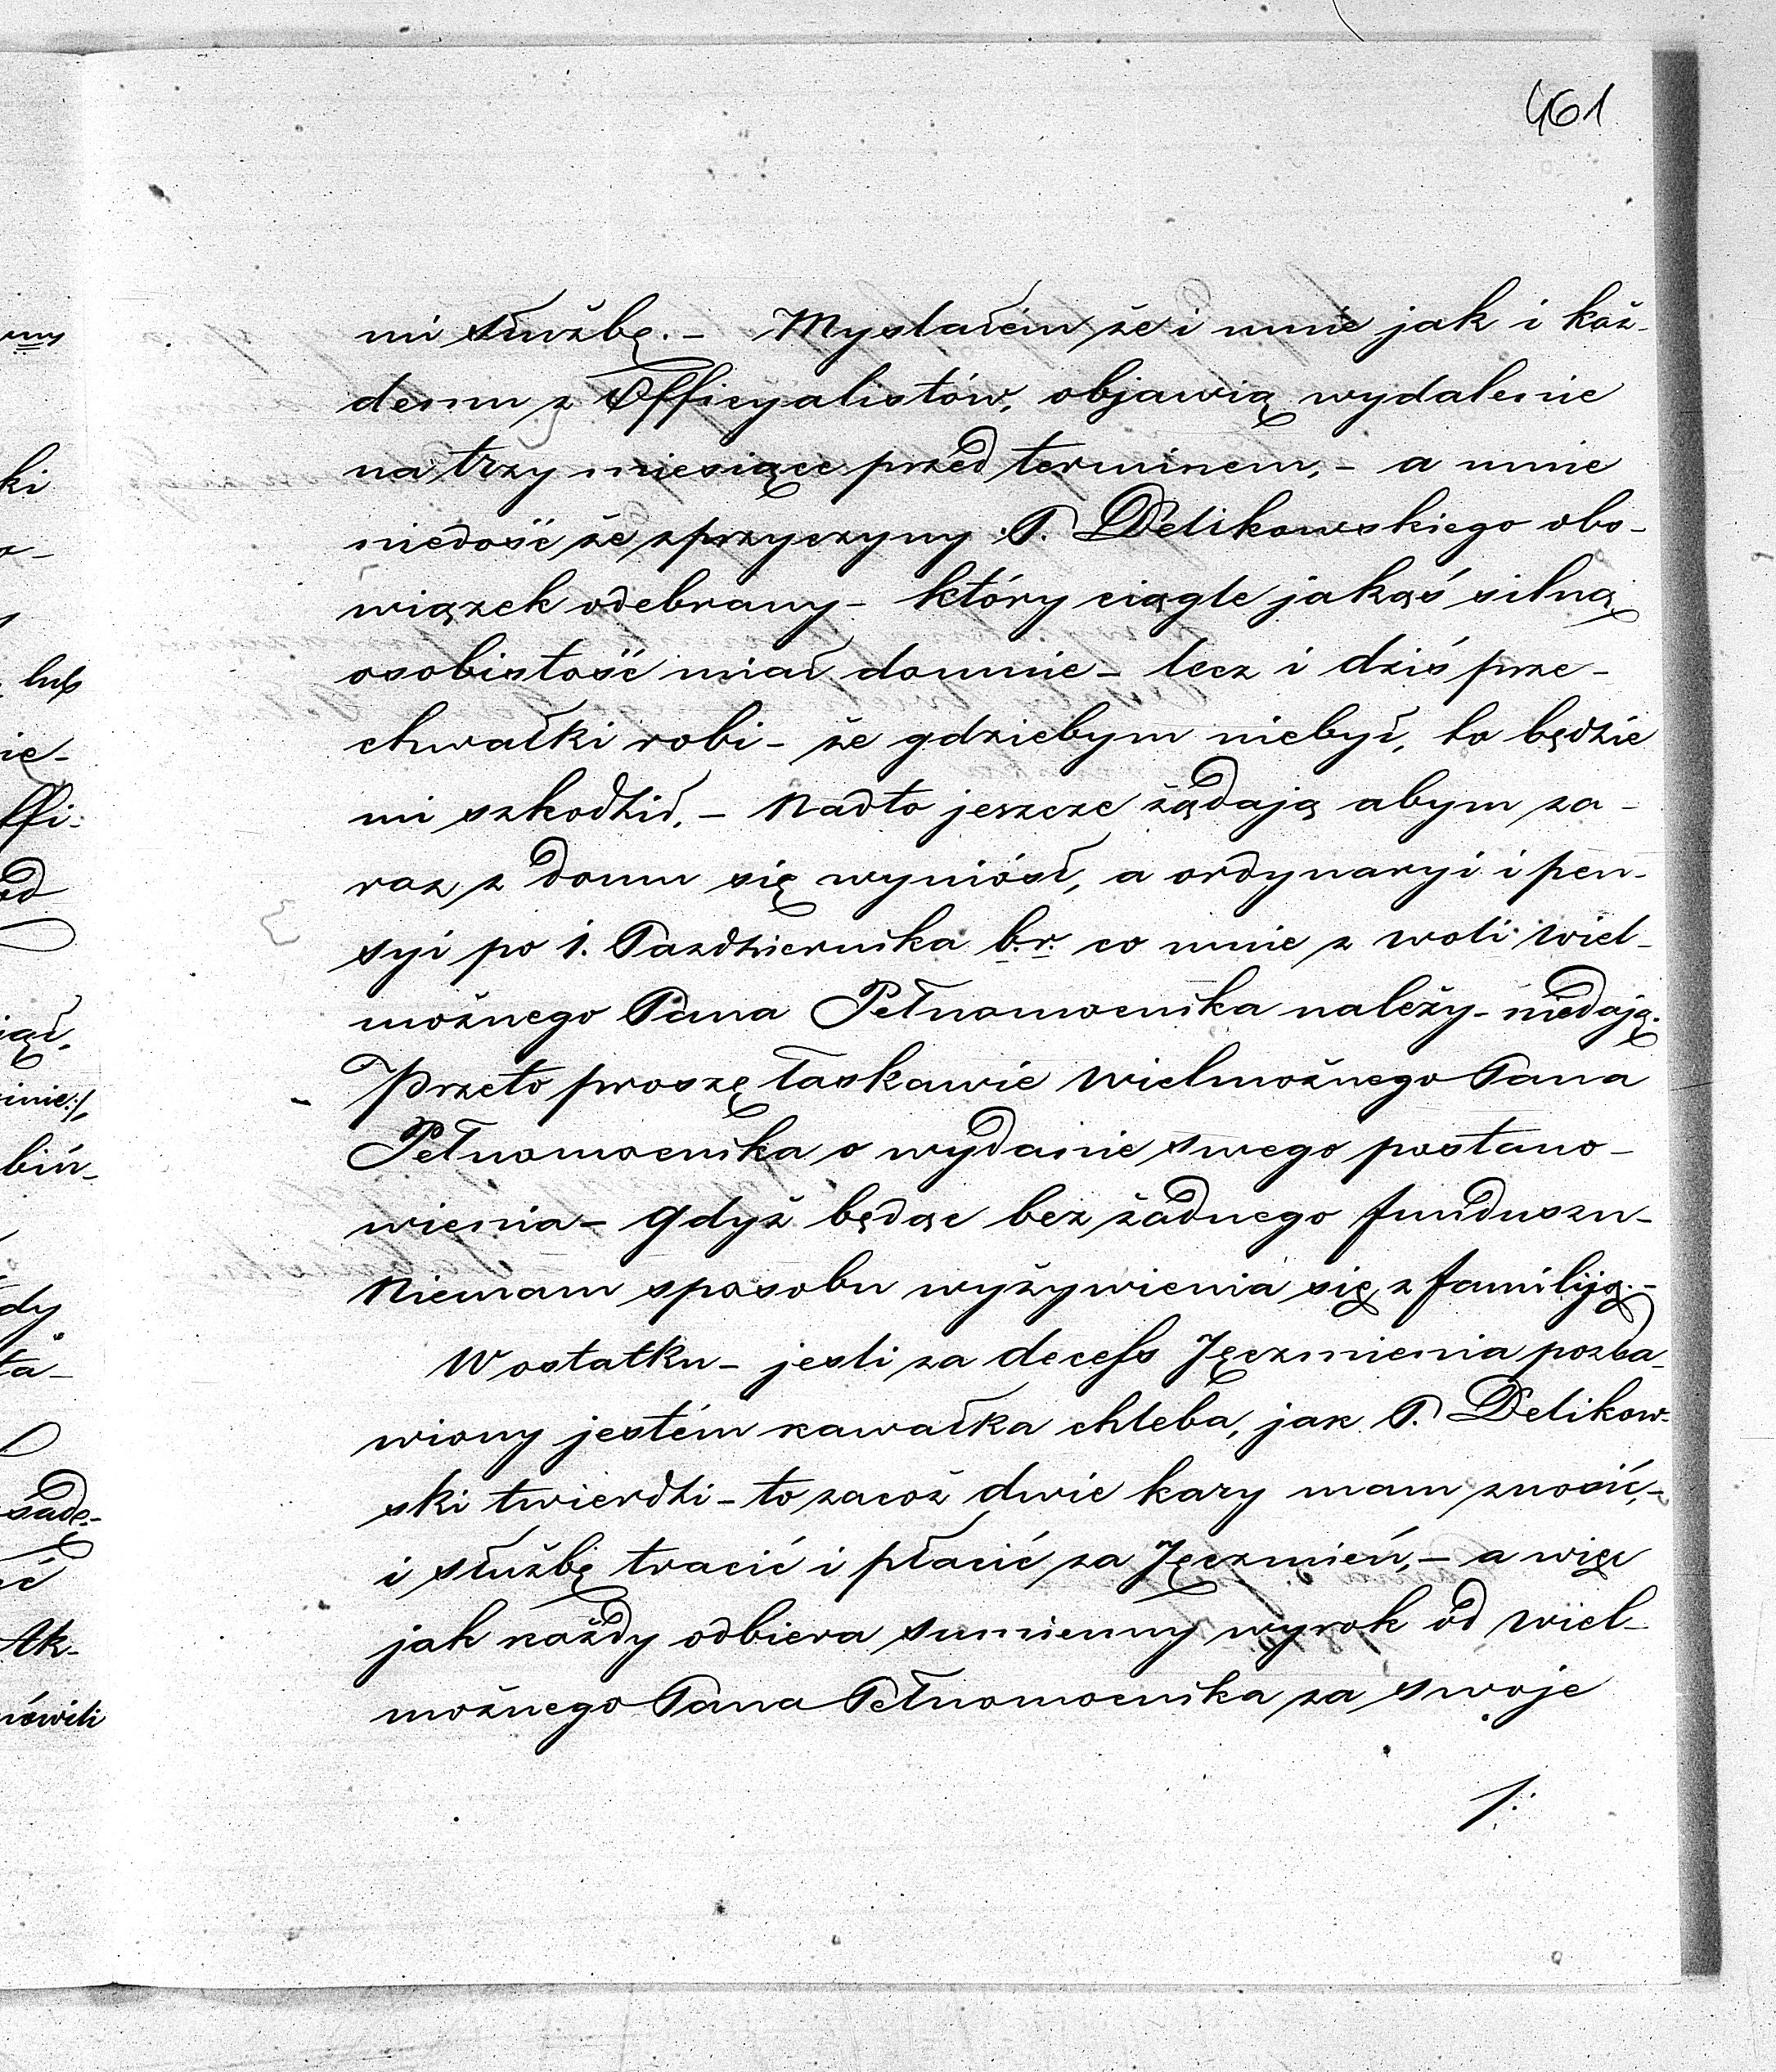 461
mi służbę. – Myslałém że i mnie jak i każ-
demu z Officyalistów, objawią wydalenie
na trzy miesiące przed terminem, – a mnie
niedość że zprzyczyny P. Delikowskiego obo-
wiązek odebrany – który ciągle jakąś silną
osobistość miał domnie – lecz i dziś prze-
chwałki robi – że gdziebym niebył, to będzie
mi szkodził. – Nadto jeszcze żądają abym za-
raz z domu się wyniósł, a ordynaryi i pen-
syi po 1. Pazdziernika b.r. co mnie z woli Wiel-
możnego Pana Pełnomocnika należy – niedają.
Przeto proszę łaskawie Wielmożnego Pana
Pełnomocnika o wydanie swego postano-
wienia – gdyż będąc bez żadnego funduszu –
Niemam sposobu wyżywienia się z familiją. –
W ostatku – jesli za decess Jęczmienia pozba-
wiony jestém kawałka chleba, jak P. Delikow-
ski twierdzi – to zacóż dwie kary mam znosić, –
i służbę tracić i płacić za Jęczmień, – a więc
jak każdy odbiera sumienny wyrok od Wiel-
możnego Pana Pełnomocnika za swoje
/:
ki
lub
ie-
ffi:
od
inie:/,
biń-
dy
ta-
Ak-
mówili